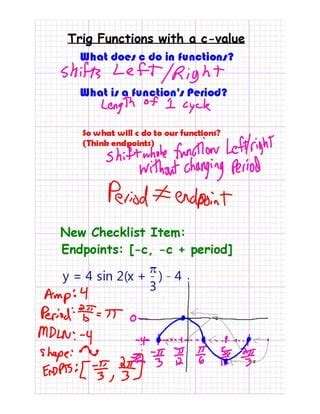 Trig Functions with a c-value
What does c do in functions?
Shifts Left/Right
What is a function's Period?
Length of 1 cycle
So what will c do to our functions?
(Think endpoints)
Shift whole function left/right
without changing Period
Period ≠ endpoint
New Checklist Item:
Endpoints: [-c, -c + period]
y = 4 sin 2(x + π/3) - 4
Amp: 4
Period: 2π/b = π
MDLN: -4
Shape:
EndPTS: [-π/3, 2π/3]
0
-4
-π/3 π/6 2π/3